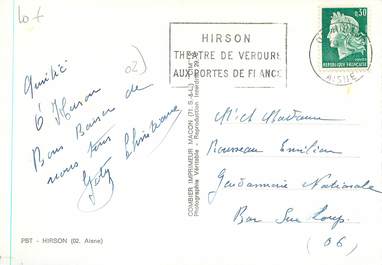 HIRSON
THEATRE DE VERDURE
AUX PORTES DE FRANCE
0,30
REPUBLIQUE FRANÇAISE
AISNE
02)
Amitié
d'Hirson
Bons Baisers de
nous tous
Christiane
Mr et Madame
Rousseau Emilien
Gendarmerie Nationale
Bar Sur Loup.
(06)
COMBIER IMPRIMEUR MACON (71. S.-&-L.)
Photographie Véritable - Reproduction Interdite
PST - HIRSON (02. Aisne)